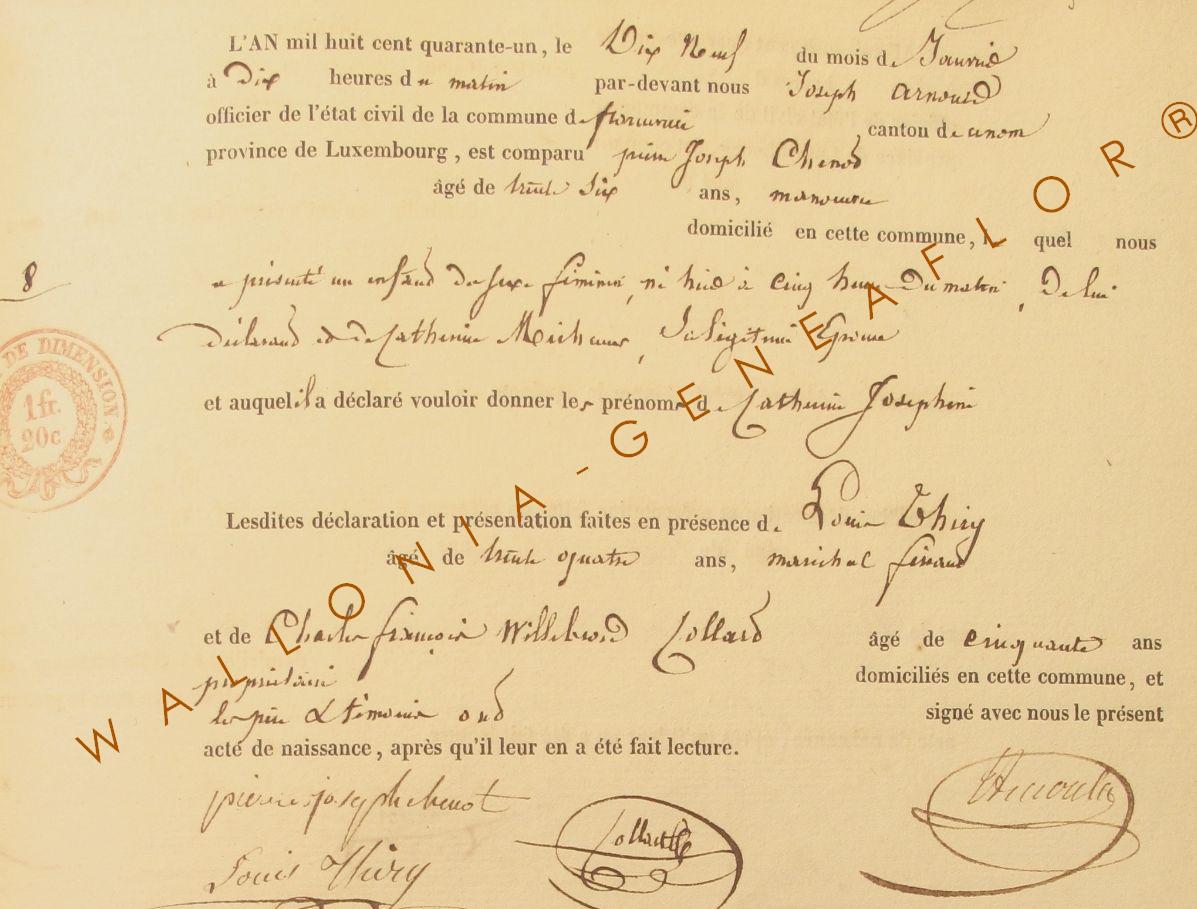 L'AN mil huit cent quarante-un, le Dix Neuf du mois de Janvier
à Dix heures du matin par-devant nous Joseph Arnould
officier de l'état civil de la commune de canton de
province de Luxembourg, est comparu pierre Joseph Chenot
âgé de trente Six ans, manouvrier
domicilié en cette commune, lequel nous
8
a présenté un enfant du sexe féminin, né hier à cinq heures du matin, de lui
déclarant et de Catherine sa légitime Epouse
DE DIMENSION.
1 fr.
20c
et auquel il a déclaré vouloir donner les prénoms de Catherine Josephine
Lesdites déclaration et présentation faites en présence de Louis Thiry
âgé de trente quatre ans, maréchal ferrant
et de Charles françois Willebrord Collard âgé de cinquante ans
propriétaire domiciliés en cette commune, et
les père & témoins ont signé avec nous le présent
acte de naissance, après qu'il leur en a été fait lecture.
pierre joseph chenot
Collard
Louis Thiry
WALLONIA-GENEAFLOR®